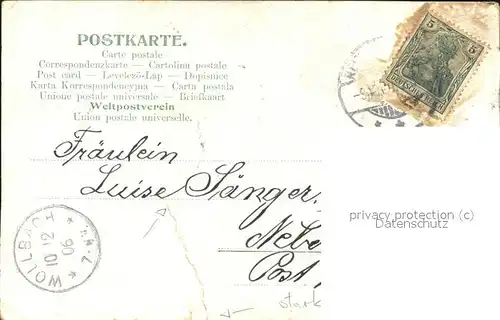 POSTKARTE.
Carte postale
Correspondenzkarte — Cartolina postale
Post card — Levelező-Lap — Dopisnice
Karta Korrespondencyjna — Carta postala
Unione postale universale — Briefkaart
Weltpostverein
Union postale universelle.
5
DEUTSCHES REICH
Fräulein
Luise Sänger.
privacy protection (c)
Datenschutz
WOLLBACH
10 12
06
Nebe
Post,
stark